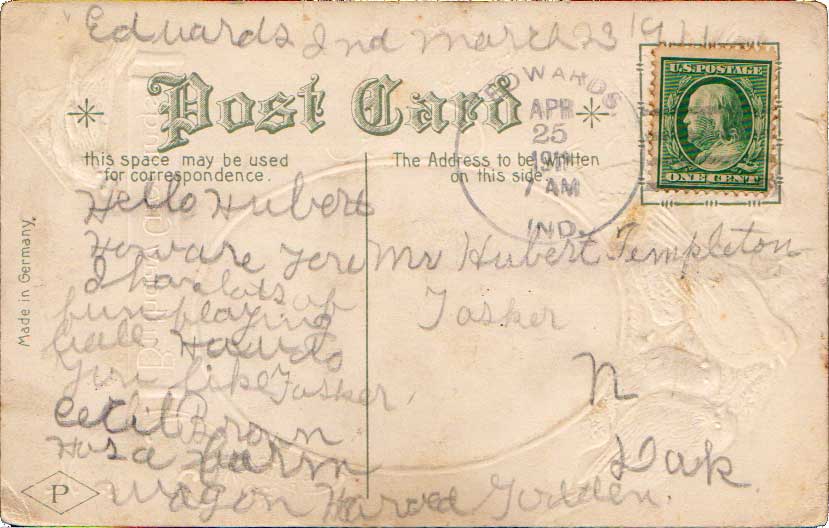 Edwards Ind March 23 1911
Post Card
this space may be used
for correspondence.
The Address to be written
on this side.
EDWARDS
APR
25
1911
7 AM
IND.
U.S. POSTAGE
ONE CENT
Made in Germany.
Hello Hubert
How are you
I hav lots of
fun playing
ball How do
you like Tasker
Cecil Brown
Has a farm
wagon Harold Godden.
P
Mr Hubert Templeton
Tasker
N
Dak.